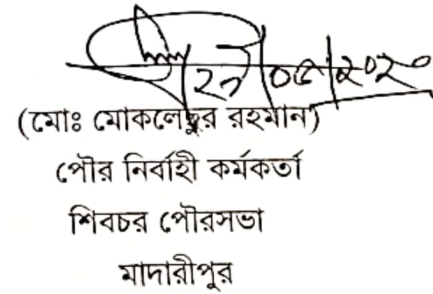 ২১/০৫/২০২০
(মোঃ মোকলেছুর রহমান)
পৌর নির্বাহী কর্মকর্তা
শিবচর পৌরসভা
মাদারীপুর